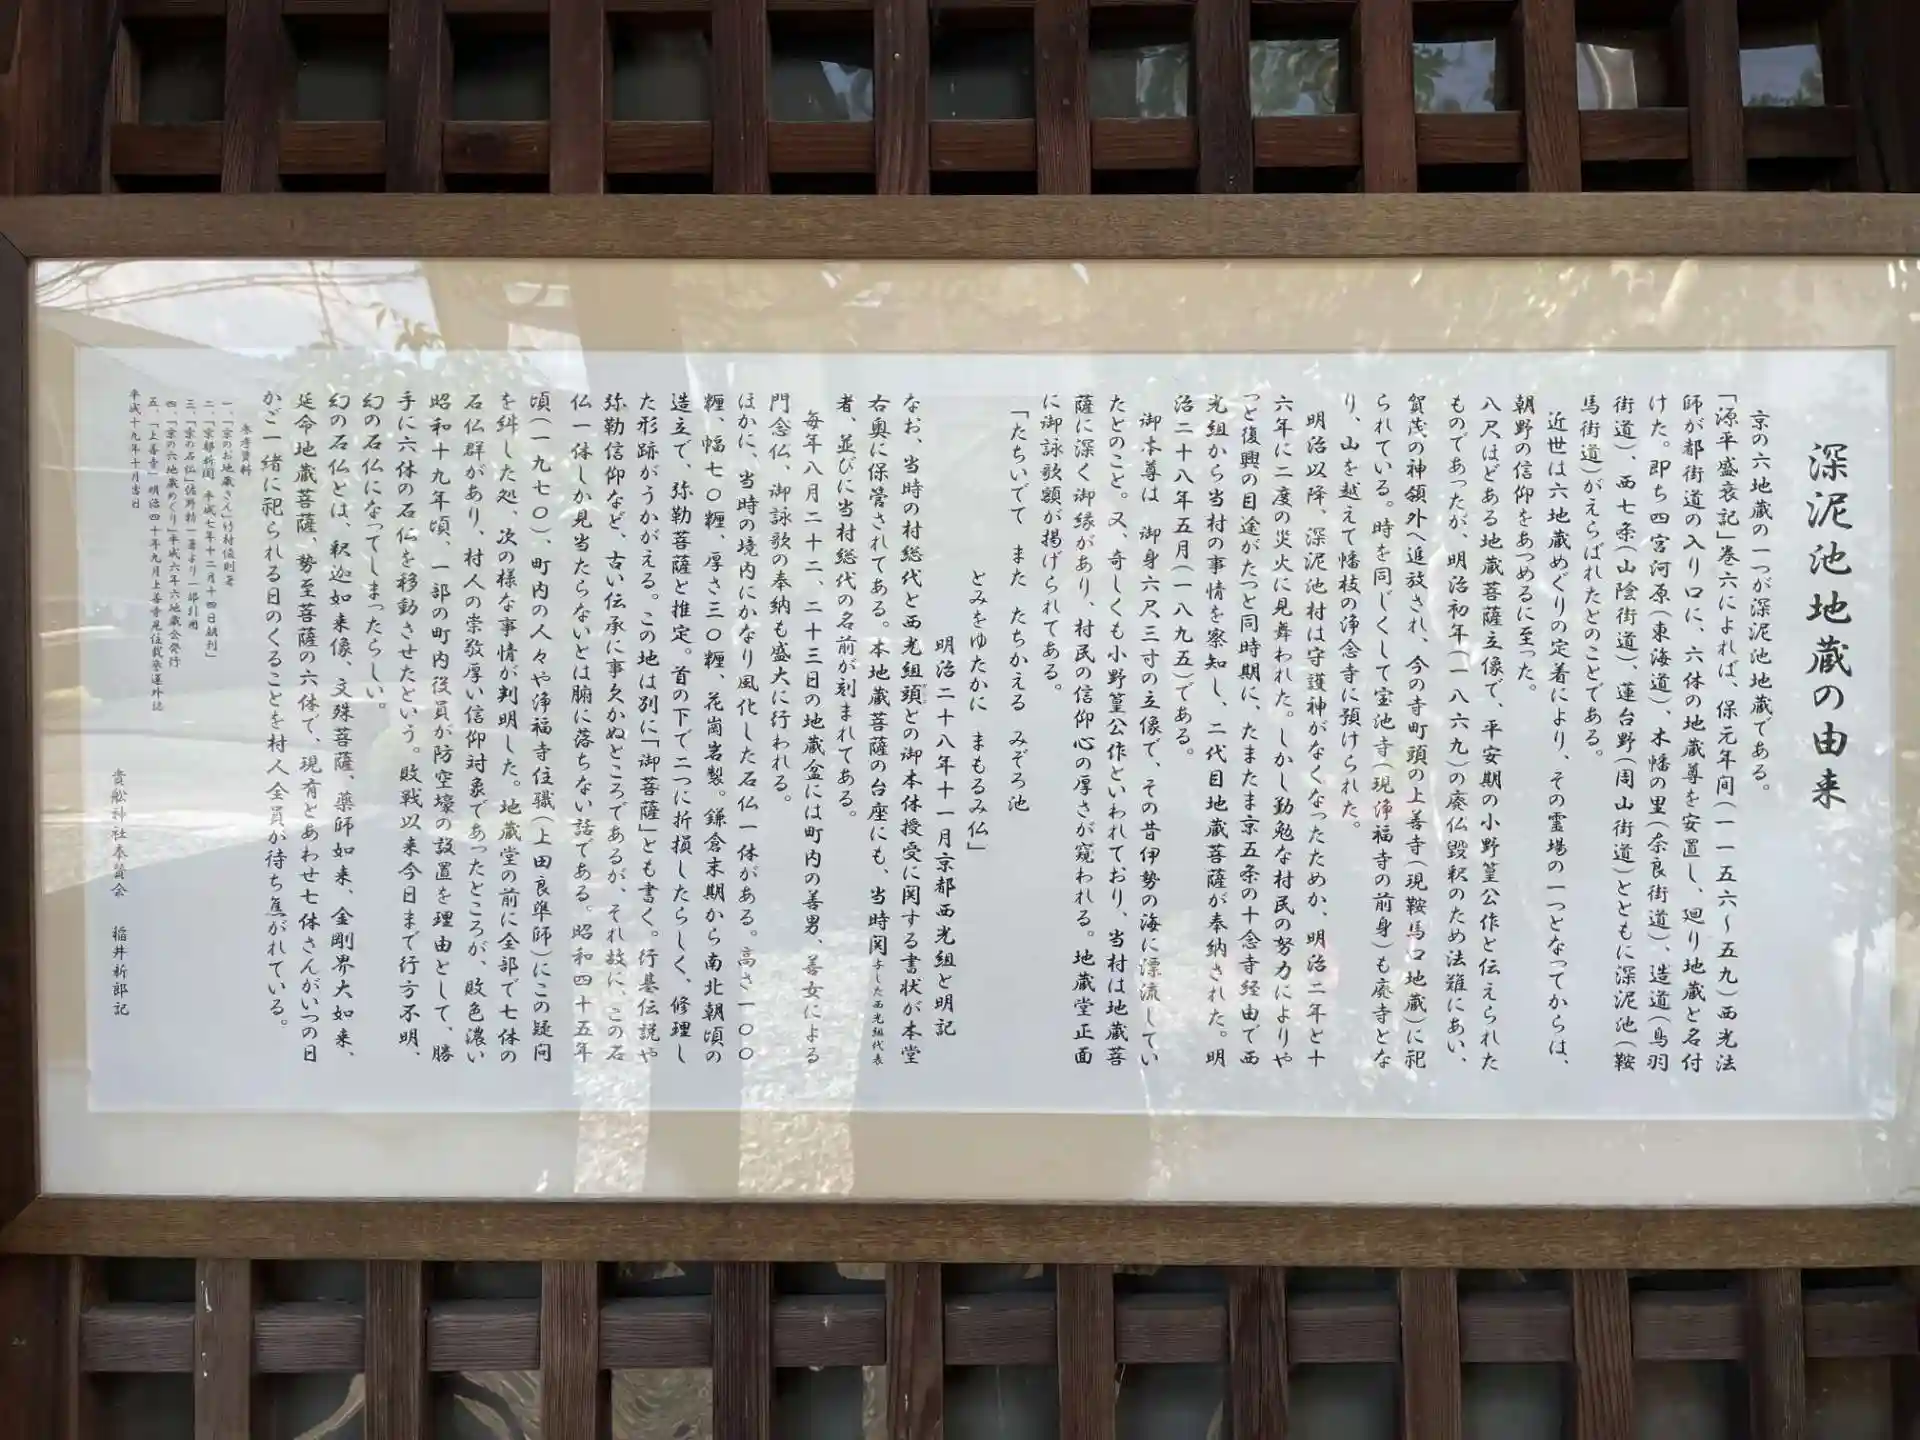 深泥池地蔵の由来
京の六地蔵の一つが深泥池地蔵である。
「源平盛衰記」巻六によれば、保元年間(一一五六〜五九)西光法
師が都街道の入り口に、六体の地蔵尊を安置し、廻り地蔵と名付
けた。即ち四宮河原(東海道)、木幡の里(奈良街道)、造道(鳥羽
街道)、西七条(山陰街道)、蓮台野(周山街道)とともに深泥池(鞍
馬街道)がえらばれたとのことである。
近世は六地蔵めぐりの定着により、その霊場の一つとなってからは、
朝野の信仰をあつめるに至った。
八尺はどある地蔵菩薩立像で、平安期の小野篁公作と伝えられた
ものであったが、明治初年(一八六九)の廃仏毀釈のため法難にあい、
賀茂の神領外へ追放され、今の寺町頭の上善寺(現鞍馬口地蔵)に祀
られている。時を同じくして宝池寺(現浄福寺の前身)も廃寺とな
り、山を越えて幡枝の浄念寺に預けられた。
明治以降、深泥池村は守護神がなくなったためか、明治二年と十
六年に二度の災火に見舞われた。しかし勤勉な村民の努力によりや
っと復興の目途がたつと同時期に、たまたま京五条の十念寺経由で西
光組から当村の事情を察知し、二代目地蔵菩薩が奉納された。明
治二十八年五月(一八九五)である。
御本尊は 御身六尺三寸の立像で、その昔伊勢の海に漂流してい
たとのこと。又、奇しくも小野篁公作といわれており、当村は地蔵菩
薩に深く御縁があり、村民の信仰心の厚さが窺われる。地蔵堂正面
に御詠歌額が掲げられてある。
「たちいでて また たちかえる みぞろ池
とみをゆたかに まもるみ仏」
明治二十八年十一月京都西光組と明記
なお、当時の村総代と西光組頭との御本体授受に関する書状が本堂
右奥に保管されてある。本地蔵菩薩の台座にも、当時関与した西光組代表
者、並びに当村総代の名前が刻まれてある。
毎年八月二十二、二十三日の地蔵盆には町内の善男、善女による
門念仏、御詠歌の奉納も盛大に行われる。
ほかに、当時の境内にかなり風化した石仏一体がある。高さ一〇〇
糎、幅七〇糎、厚さ三〇糎、花崗岩製。鎌倉末期から南北朝頃の
造立で、弥勒菩薩と推定。首の下で二つに折損したらしく、修理し
た形跡がうかがえる。この地は別に「御菩薩」とも書く。行基伝説や
弥勒信仰など、古い伝承に事欠かぬところであるが、それ故に、この石
仏一体しか見当たらないとは腑に落ちない話である。昭和四十五年
頃(一九七〇)、町内の人々や浄福寺住職(上田良準師)にこの疑問
を糾した処、次の様な事情が判明した。地蔵堂の前に全部で七体の
石仏群があり、村人の崇敬厚い信仰対象であったところが、敗色濃い
昭和十九年頃、一部の町内役員が防空壕の設置を理由として、勝
手に六体の石仏を移動させたという。敗戦以来今日まで行方不明、
幻の石仏になってしまったらしい。
幻の石仏とは、釈迦如来像、文殊菩薩、薬師如来、金剛界大如来、
延命地蔵菩薩、勢至菩薩の六体で、現有とあわせ七体さんがいつの日
かご一緒に祀られる日のくることを村人全員が待ち焦がれている。
参考資料
一、「京のお地蔵さん」竹村俊則著
二、「京都新聞 平成七年十二月十四日朝刊」
三、「京の石仏」佐野精一著より一部引用
四、「京の六地蔵めぐり」平成六年六地蔵会発行
五、「上善寺」明治四十年九月上善寺見住載誉運外誌
平成十九年十月吉日
貴舩神社奉賛会 稲井新郎記